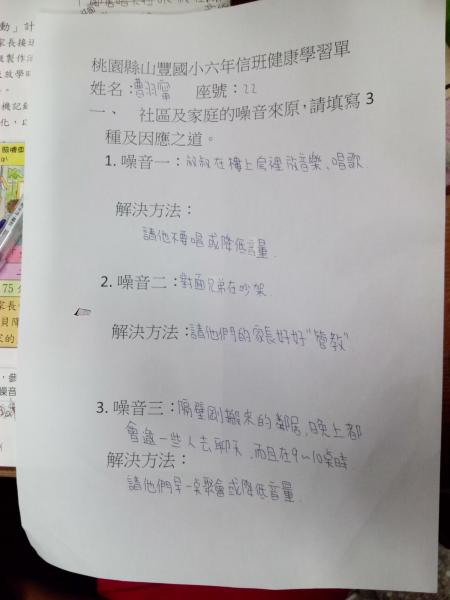 桃園縣山豐國小六年信班健康學習單
姓名：曹羽甯 座號：22
一、 社區及家庭的噪音來原，請填寫3
種及因應之道。
1. 噪音一：叔叔在樓上房裡放音樂、唱歌
解決方法：
請他不要唱或降低音量.
2. 噪音二：對面兄弟在吵架.
解決方法：請他們的家長好好"管教"
3. 噪音三：隔壁剛搬來的鄰居,晚上都
會邀一些人去聊天,而且在9~10點時.
解決方法：
請他們早一點聚會或降低音量.